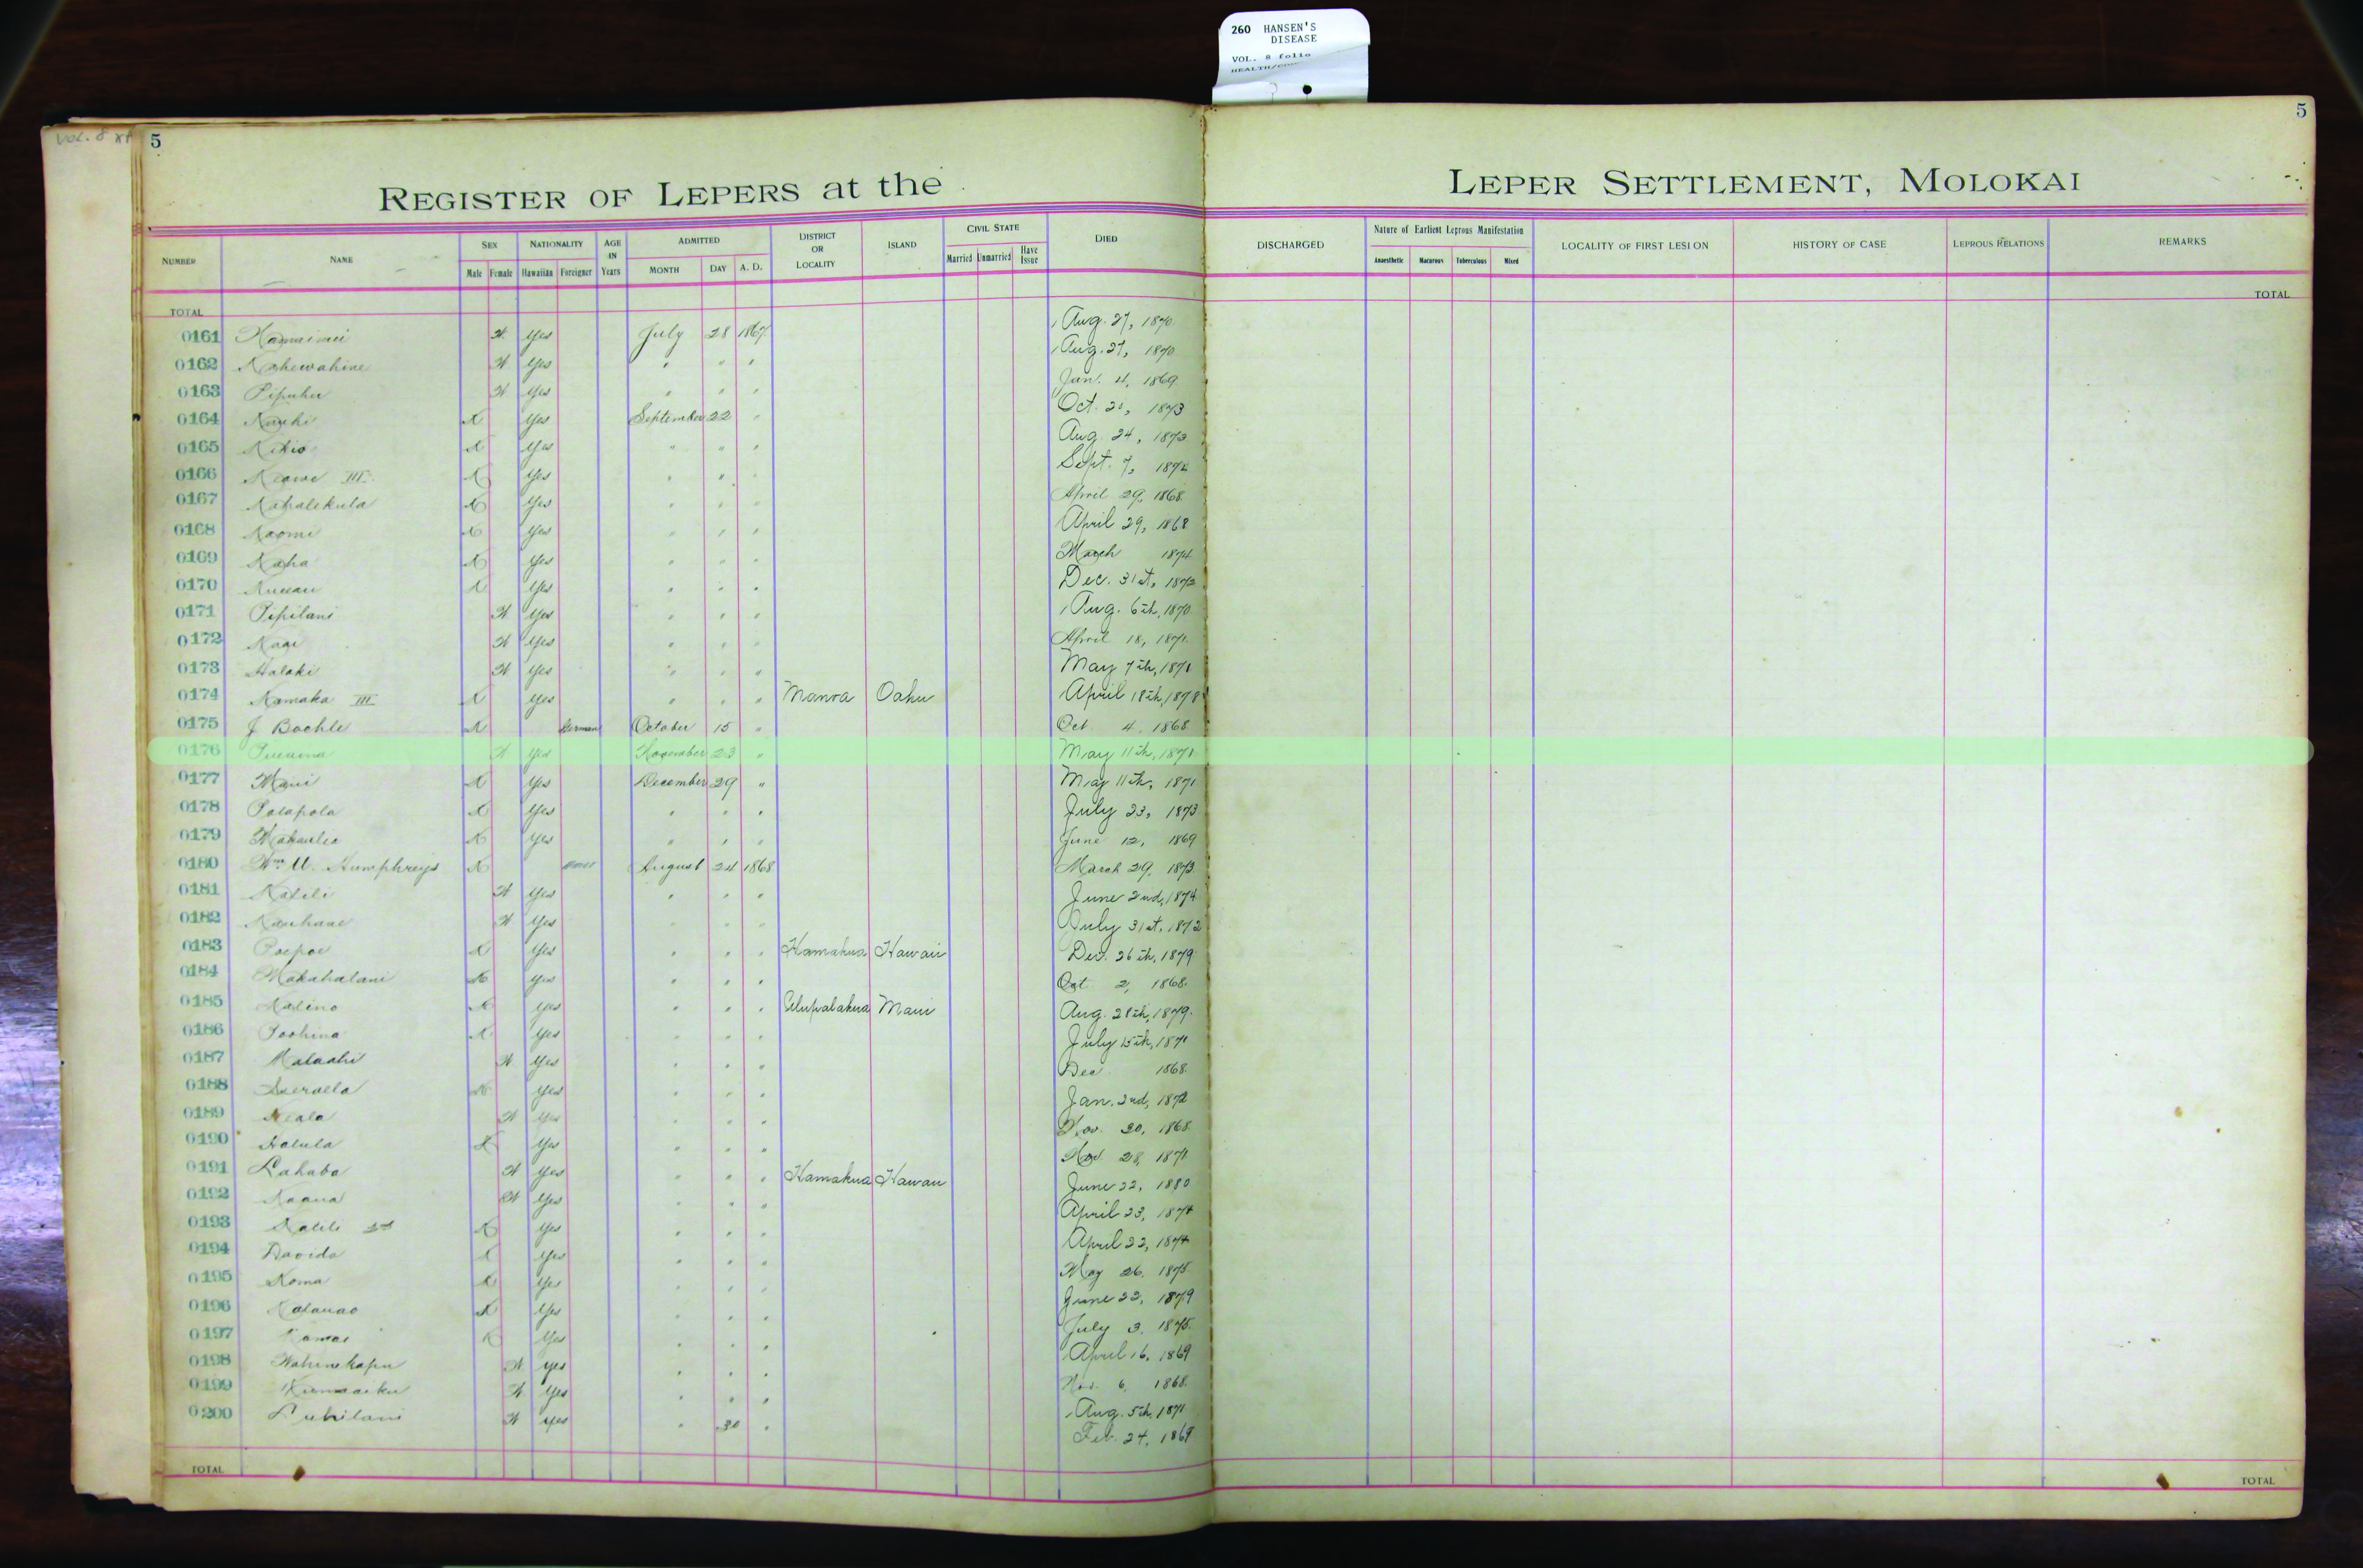 260 HANSEN'S
DISEASE
VOL. 8 folio
HEALTH/
VOL. 8
5
5
REGISTER OF LEPERS at the LEPER SETTLEMENT, MOLOKAI
NUMBER NAME SEX Male Female NATIONALITY Hawaiian Foreigner AGE IN Years ADMITTED MONTH DAY A. D. DISTRICT OR LOCALITY ISLAND CIVIL STATE Married Unmarried Have Issue DIED DISCHARGED Nature of Earliest Leprous Manifestation Anaesthetic Macurous Tuberculous Mixed LOCALITY OF FIRST LESION HISTORY OF CASE LEPROUS RELATIONS REMARKS
TOTAL TOTAL
0161 Yes July 28 1867 Aug. 27, 1870
0162 Kahewahine Yes " " " Aug. 27, 1870
0163 Pipuhu Yes " " " Jan. 4, 1869
0164 Yes September 22 " Oct. 1873
0165 Kikio Yes " " " Aug. 24, 1873
0166 Keawe III Yes " " " Sept. 7, 1874
0167 Kahalekula Yes " " " April 29, 1868
0168 Naomi Yes " " " April 29, 1868
0169 Kaha Yes " " " March 1874
0170 Yes " " " Dec. 31st, 1873
0171 Pipilani Yes " " " Aug. 6th, 1870
0172 Yes " " " April 18, 1871
0173 Halaki Yes " " " May 7th, 1871
0174 Kamaka III Yes " " " Manoa Oahu April 18th, 1878
0175 J Bachle German October 15 " Oct 4, 1868
0176 Yes November 23 " May 11th, 1871
0177 Maui Yes December 29 " May 11th, 1871
0178 Polapola Yes " " " July 23, 1873
0179 Yes " " " June 12, 1869
0180 Wm U. Humphreys August 24 1868 March 29, 1873
0181 Kalili Yes " " " June 2nd, 1874
0182 Kauhane Yes " " " July 31st, 1872
0183 Poepoe Yes " " " Hamakua Hawaii Dec. 26th, 1879
0184 Makahalani Yes " " " Oct 2, 1868
0185 Kalino Yes " " " Ulupalakua Maui Aug. 28th, 1879
0186 Poohina Yes " " " July 15th, 1871
0187 Malaahi Yes " " " Dec 1868
0188 Yes " " " Jan. 2nd, 1872
0189 Keala Yes " " " Nov. 30, 1868
0190 Halula Yes " " " Nov. 28, 1871
0191 Lahaba Yes " " " Hamakua Hawaii June 22, 1880
0192 Kaaua Yes " " " April 23, 1874
0193 Kalili 2nd Yes " " " April 22, 1874
0194 Davida Yes " " " May 26, 1875
0195 Koma Yes " " " June 22, 1879
0196 Kalauao Yes " " " July 3, 1875
0197 Kamai Yes " " " April 16, 1869
0198 Wahinekapu Yes " " " Nov. 6, 1868
0199 Kumaaiku Yes " " " Aug. 5th, 1871
0200 Luhilani Yes " 30 " Feb. 24, 1869
TOTAL TOTAL